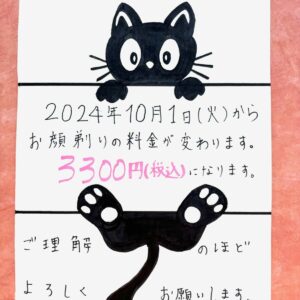 2024年10月1日(火)から
お顔剃りの料金が変わります。
3300円(税込)になります。
ご理解のほど
よろしくお願いします。